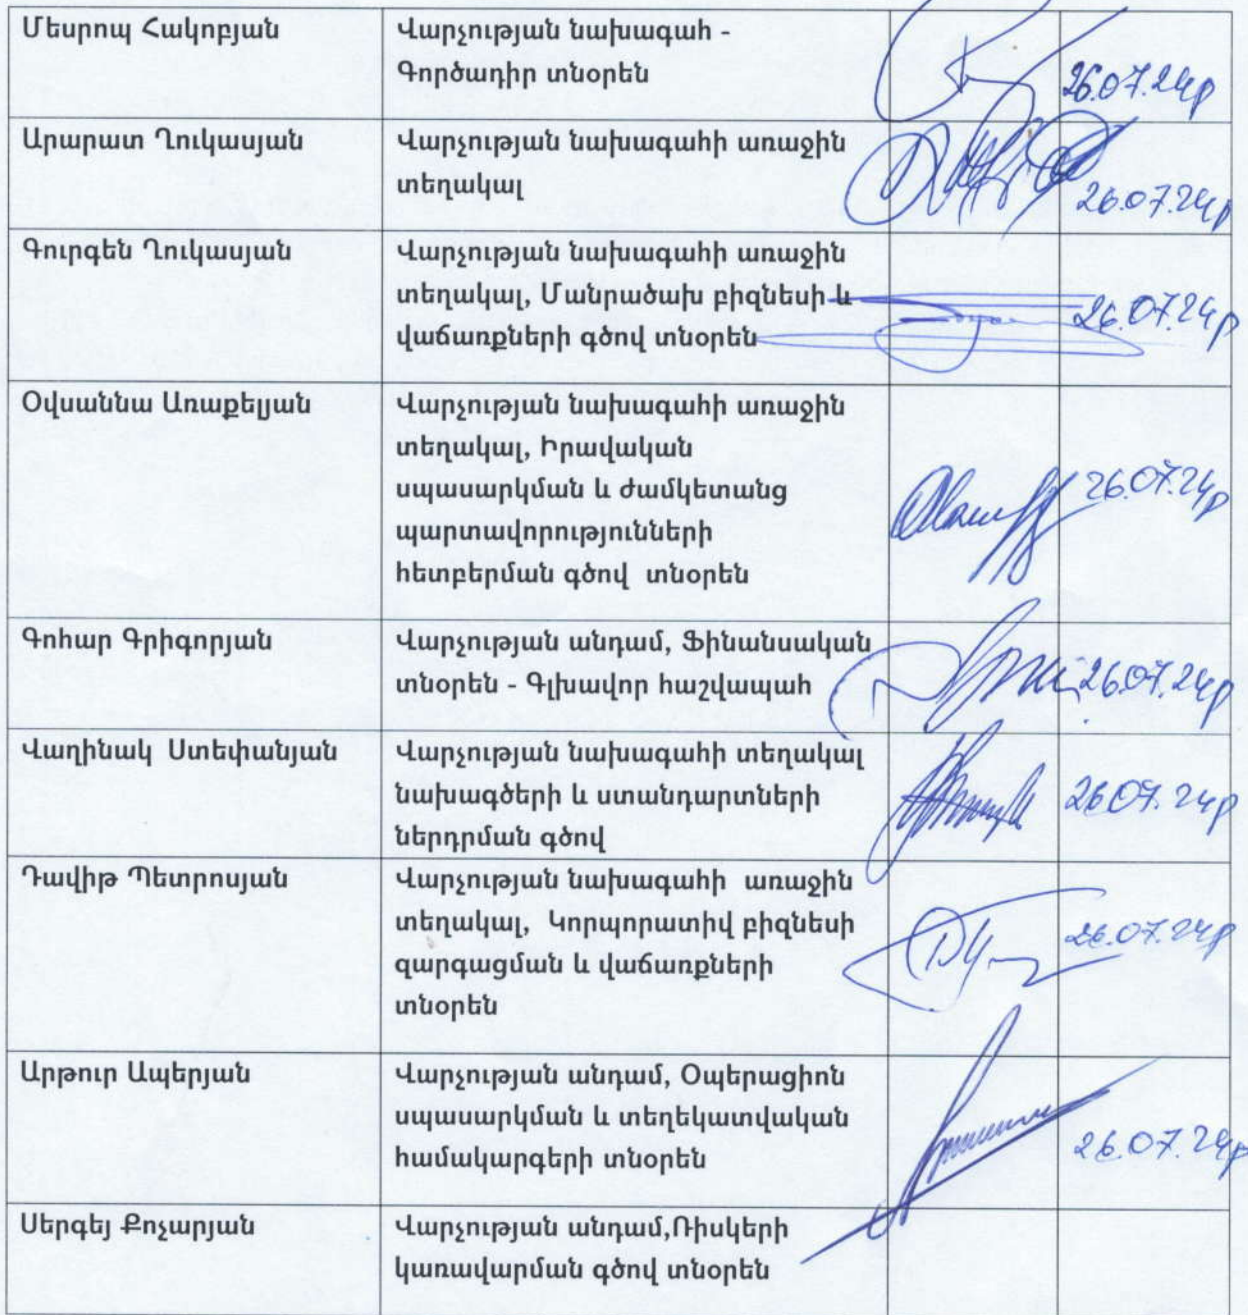 Մեսրոպ Հակոբյան
Վարչության նախագահ -
Գործադիր տնօրեն
26.07.24թ
Արարատ Ղուկասյան
Վարչության նախագահի առաջին
տեղակալ
26.07.24թ
Գուրգեն Ղուկասյան
Վարչության նախագահի առաջին
տեղակալ, Մանրածախ բիզնեսի և
վաճառքների գծով տնօրեն
26.07.24թ
Օվսաննա Առաքելյան
Վարչության նախագահի առաջին
տեղակալ, Իրավական
սպասարկման և ժամկետանց
պարտավորությունների
հետբերման գծով տնօրեն
26.07.24թ
Գոհար Գրիգորյան
Վարչության անդամ, Ֆինանսական
տնօրեն - Գլխավոր հաշվապահ
26.07.24թ
Վաղինակ Ստեփանյան
Վարչության նախագահի տեղակալ
նախագծերի և ստանդարտների
ներդրման գծով
26.07.24թ
Դավիթ Պետրոսյան
Վարչության նախագահի առաջին
տեղակալ, Կորպորատիվ բիզնեսի
զարգացման և վաճառքների
տնօրեն
26.07.24թ
Արթուր Ապերյան
Վարչության անդամ, Օպերացիոն
սպասարկման և տեղեկատվական
համակարգերի տնօրեն
26.07.24թ
Սերգեյ Քոչարյան
Վարչության անդամ,Ռիսկերի
կառավարման գծով տնօրեն